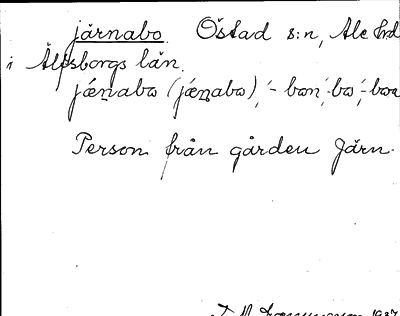 järnabo. Östad s:n, Ale hrd
i Älfsborgs län.
jǽnabo (jǽnabo), ´- bon, ´bo, ´- boa
Person från gården Järn.
1927